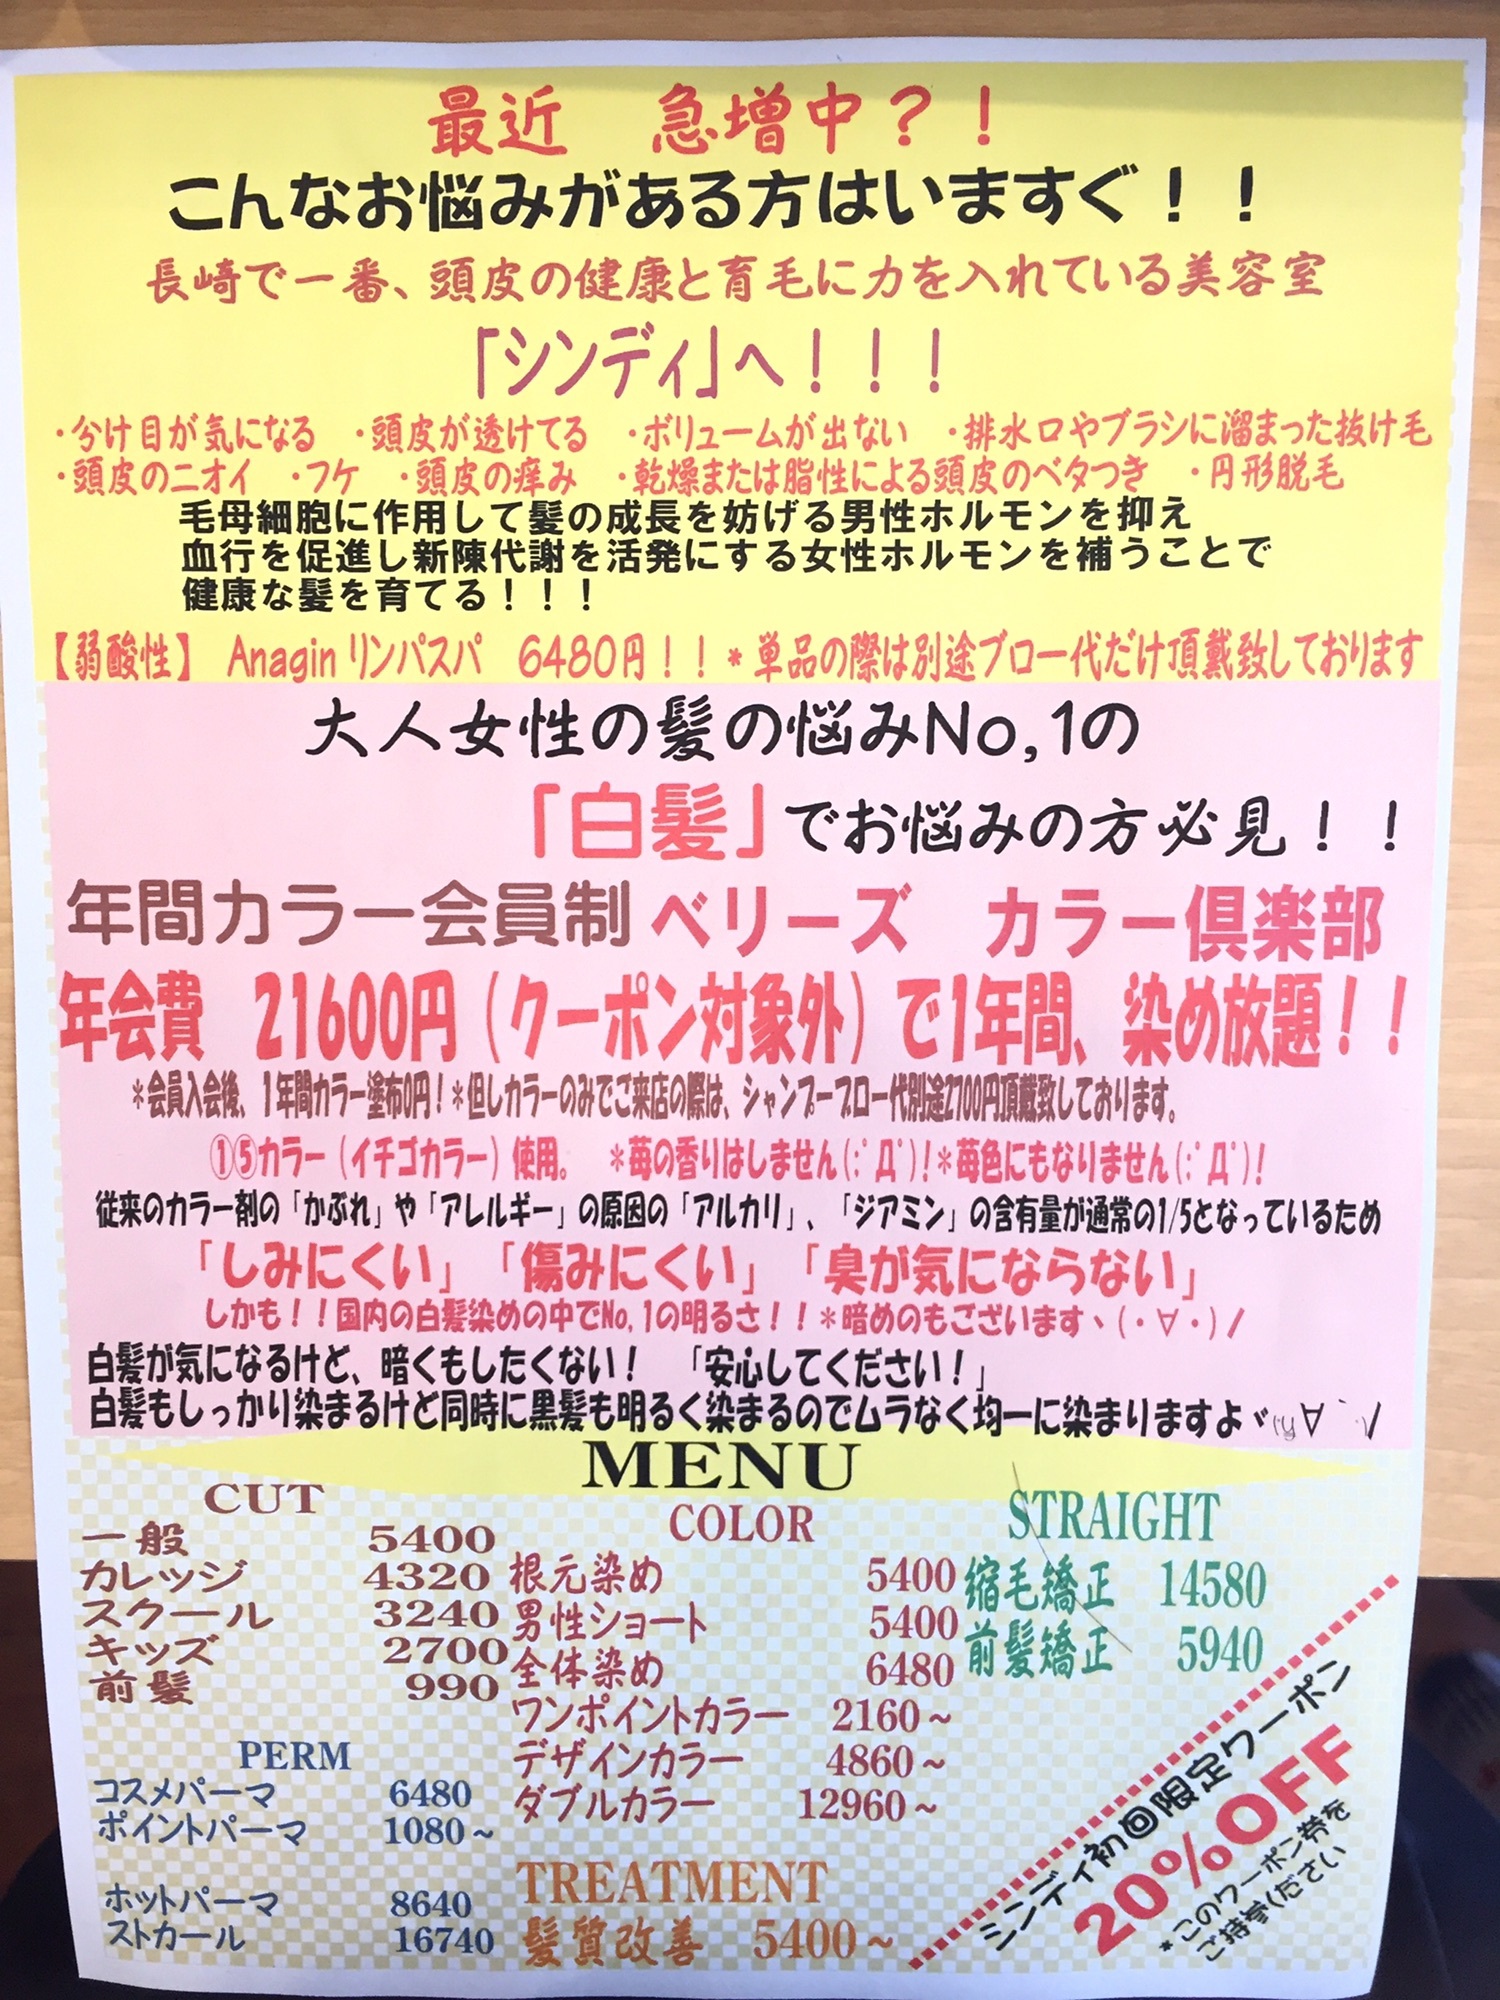 最近 急増中？！
こんなお悩みがある方はいますぐ！！
長崎で一番、頭皮の健康と育毛に力を入れている美容室
「シンディ」へ！！！
・分け目が気になる ・頭皮が透けてる ・ボリュームが出ない ・排水口やブラシに溜まった抜け毛
・頭皮のニオイ ・フケ ・頭皮の痒み ・乾燥または脂性による頭皮のベタつき ・円形脱毛
毛母細胞に作用して髪の成長を妨げる男性ホルモンを抑え
血行を促進し新陳代謝を活発にする女性ホルモンを補うことで
健康な髪を育てる！！！
【弱酸性】 Anagin リンパスパ 6480円！！＊単品の際は別途ブロー代だけ頂戴致しております
大人女性の髪の悩みNo,1の
「白髪」でお悩みの方必見！！
年間カラー会員制 ベリーズ カラー倶楽部
年会費 21600円（クーポン対象外）で1年間、染め放題！！
＊会員入会後、1年間カラー塗布0円！＊但しカラーのみでご来店の際は、シャンプーブロー代別途2700円頂戴致しております。
①⑤カラー（イチゴカラー）使用。 ＊苺の香りはしません(;ﾟДﾟ)！＊苺色にもなりません(;ﾟДﾟ)！
従来のカラー剤の「かぶれ」や「アレルギー」の原因の「アルカリ」、「ジアミン」の含有量が通常の1/5となっているため
「しみにくい」「傷みにくい」「臭が気にならない」
しかも！！国内の白髪染めの中でNo,1の明るさ！！＊暗めのもございますヽ(・∀・)ノ
白髪が気になるけど、暗くもしたくない！ 「安心してください！」
白髪もしっかり染まるけど同時に黒髪も明るく染まるのでムラなく均一に染まりますよ
MENU
CUT
一般 5400
カレッジ 4320
スクール 3240
キッズ 2700
前髪 990
PERM
コスメパーマ 6480
ポイントパーマ 1080～
ホットパーマ 8640
ストカール 16740
COLOR
根元染め 5400
男性ショート 5400
全体染め 6480
ワンポイントカラー 2160～
デザインカラー 4860～
ダブルカラー 12960～
TREATMENT
髪質改善 5400～
STRAIGHT
縮毛矯正 14580
前髪矯正 5940
シンディ初回限定クーポン
20%OFF
＊このクーポン券を
ご持参ください